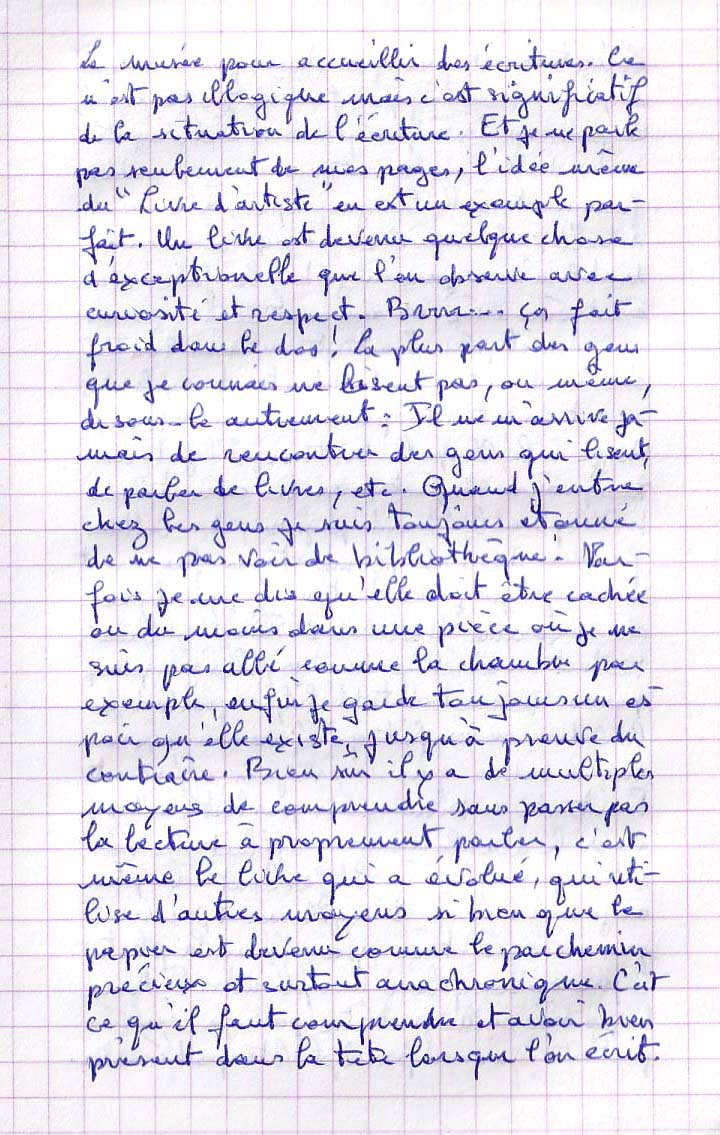 Le musée pour accueillir des écritures. Ce
n'est pas illogique mais c'est significatif
de la situation de l'écriture. Et je ne parle
pas seulement de mes pages, l'idée même
du "Livre d'artiste" en est un exemple par-
fait. Un livre est devenu quelque chose
d'exceptionelle que l'on observe avec
curiosité et respect. Brrr... ça fait
froid dans le dos! La plus part des gens
que je connais ne lisent pas, ou même,
disons-le autrement: Il ne m'arrive ja-
mais de rencontrer des gens qui lisent,
de parler de livres, etc. Quand j'entre
chez les gens je suis toujours étonné
de ne pas voir de bibliothèque. Par-
fois je me dis qu'elle doit être cachée
ou du moins dans une pièce où je ne
suis pas allé comme la chambre par
exemple, enfin je garde toujours un es-
poir qu'elle existe, jusqu'à preuve du
contraire. Bien sûr il y a de multiples
moyens de comprendre sans passer par
la lecture à proprement parler, c'est
même le livre qui a évolué, qui uti-
lise d'autres moyens si bien que le
papier est devenu comme le parchemin
précieux et surtout anachronique. C'est
ce qu'il faut comprendre et avoir bien
présent dans la tête lorsque l'on écrit.